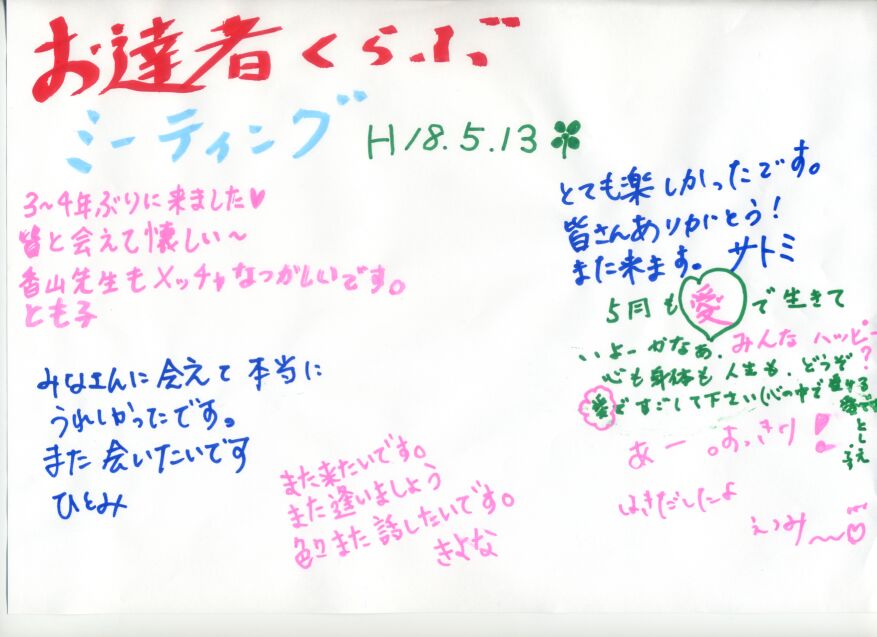 お達者くらぶ
ミーティング H18.5.13
3~4年ぶりに来ました♥
皆と会えて懐しい~
香山先生もメッチャなつかしいです。
とも子
みなさんに会えて本当に
うれしかったです。
また会いたいです
ひとみ
また来たいです。
また逢いましょう
色々また話したいです。
きよな
とても楽しかったです。
皆さんありがとう!
また来ます。 サトミ
5月も愛で生きて
いよーかなぁ. みんなハッピー?
心も身体も人生も.どうぞ
愛ですごして下さい(心の中で愛する
愛です
としえ
あー。すっきり!
はきだしたよ
えつみ~~♡